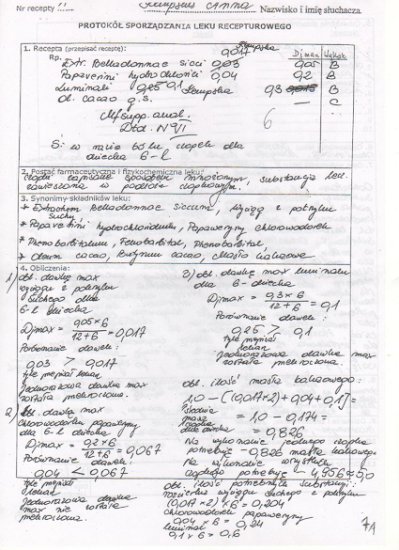 Nr recepty
Nazwisko i imię słuchacza
PROTOKÓŁ SPORZĄDZANIA LEKU RECEPTUROWEGO
1. Recepta (przepisać receptę):
Rp.
Extr. Belladonnae sicci 0,03 0,05 B
Papaverini hydrochlorici 0,04 0,2 B
Luminali 0,25 0,1 0,3 B
Ol. cacao q.s. — C
M.f. supp. anal.
Dtd. N° VI
6
S: w razie bólu czopek dla
dziecka 6-l
2. Postać farmaceutyczna i fizykochemiczna leku:
3. Synonimy składników leku:
* Extractum Belladonnae Siccum, Wyciąg z pokrzyku
suchy,
* Papaverini hydrochloridum, Papaweryny chlorowodorek
* Phenobarbitalum, Fenobarbital, Phenobarbital,
* Oleum cacao, Butyrum cacao, Masło kakaowe
4. Obliczenia:
1) obl. dawkę max
wyciągu z pokrzyku
suchego dla
6-l dziecka
Djmax = 0,05×6 / 12+6 = 0,017
Porównanie dawek:
0,03 > 0,017
tyle przepisał lekarz,
Jednorazowa dawka max
została przekroczona.
2) obl. dawkę max
chlorowodorku papaweryny
dla 6-l dziecka
Djmax = 0,2×6 / 12+6 = 0,067
Porównanie dawek:
0,04 < 0,067
tyle przepisał
lekarz
Jednorazowa dawka
max nie została
przekroczona.
3) obl. dawkę max luminalu
dla 6-dziecka
Djmax = 0,3×6 / 12+6 = 0,1
Porównanie dawek:
0,25 > 0,1
tyle przepisał
lekarz
Jednorazowa dawka max
została przekroczona.
obl. ilość masła kakaowego:
1,0 - [(0,017×2) + 0,04 + 0,1] =
= 1,0 - 0,174 =
= 0,826
Na wykonanie jednego czopka
potrzebuję - 0,826 masła kakaowego
Na wykonanie wszystkich
czopków potrzebuję - 4,956 ≈ 5,0
obl. ilość potrzebnych substancji:
wyciągu suchego z pokrzyku
(0,017×2)×6 = 0,204
chlorowodorek papaweryny
0,04 × 6 = 0,24
luminal
0,1 × 6 = 0,6